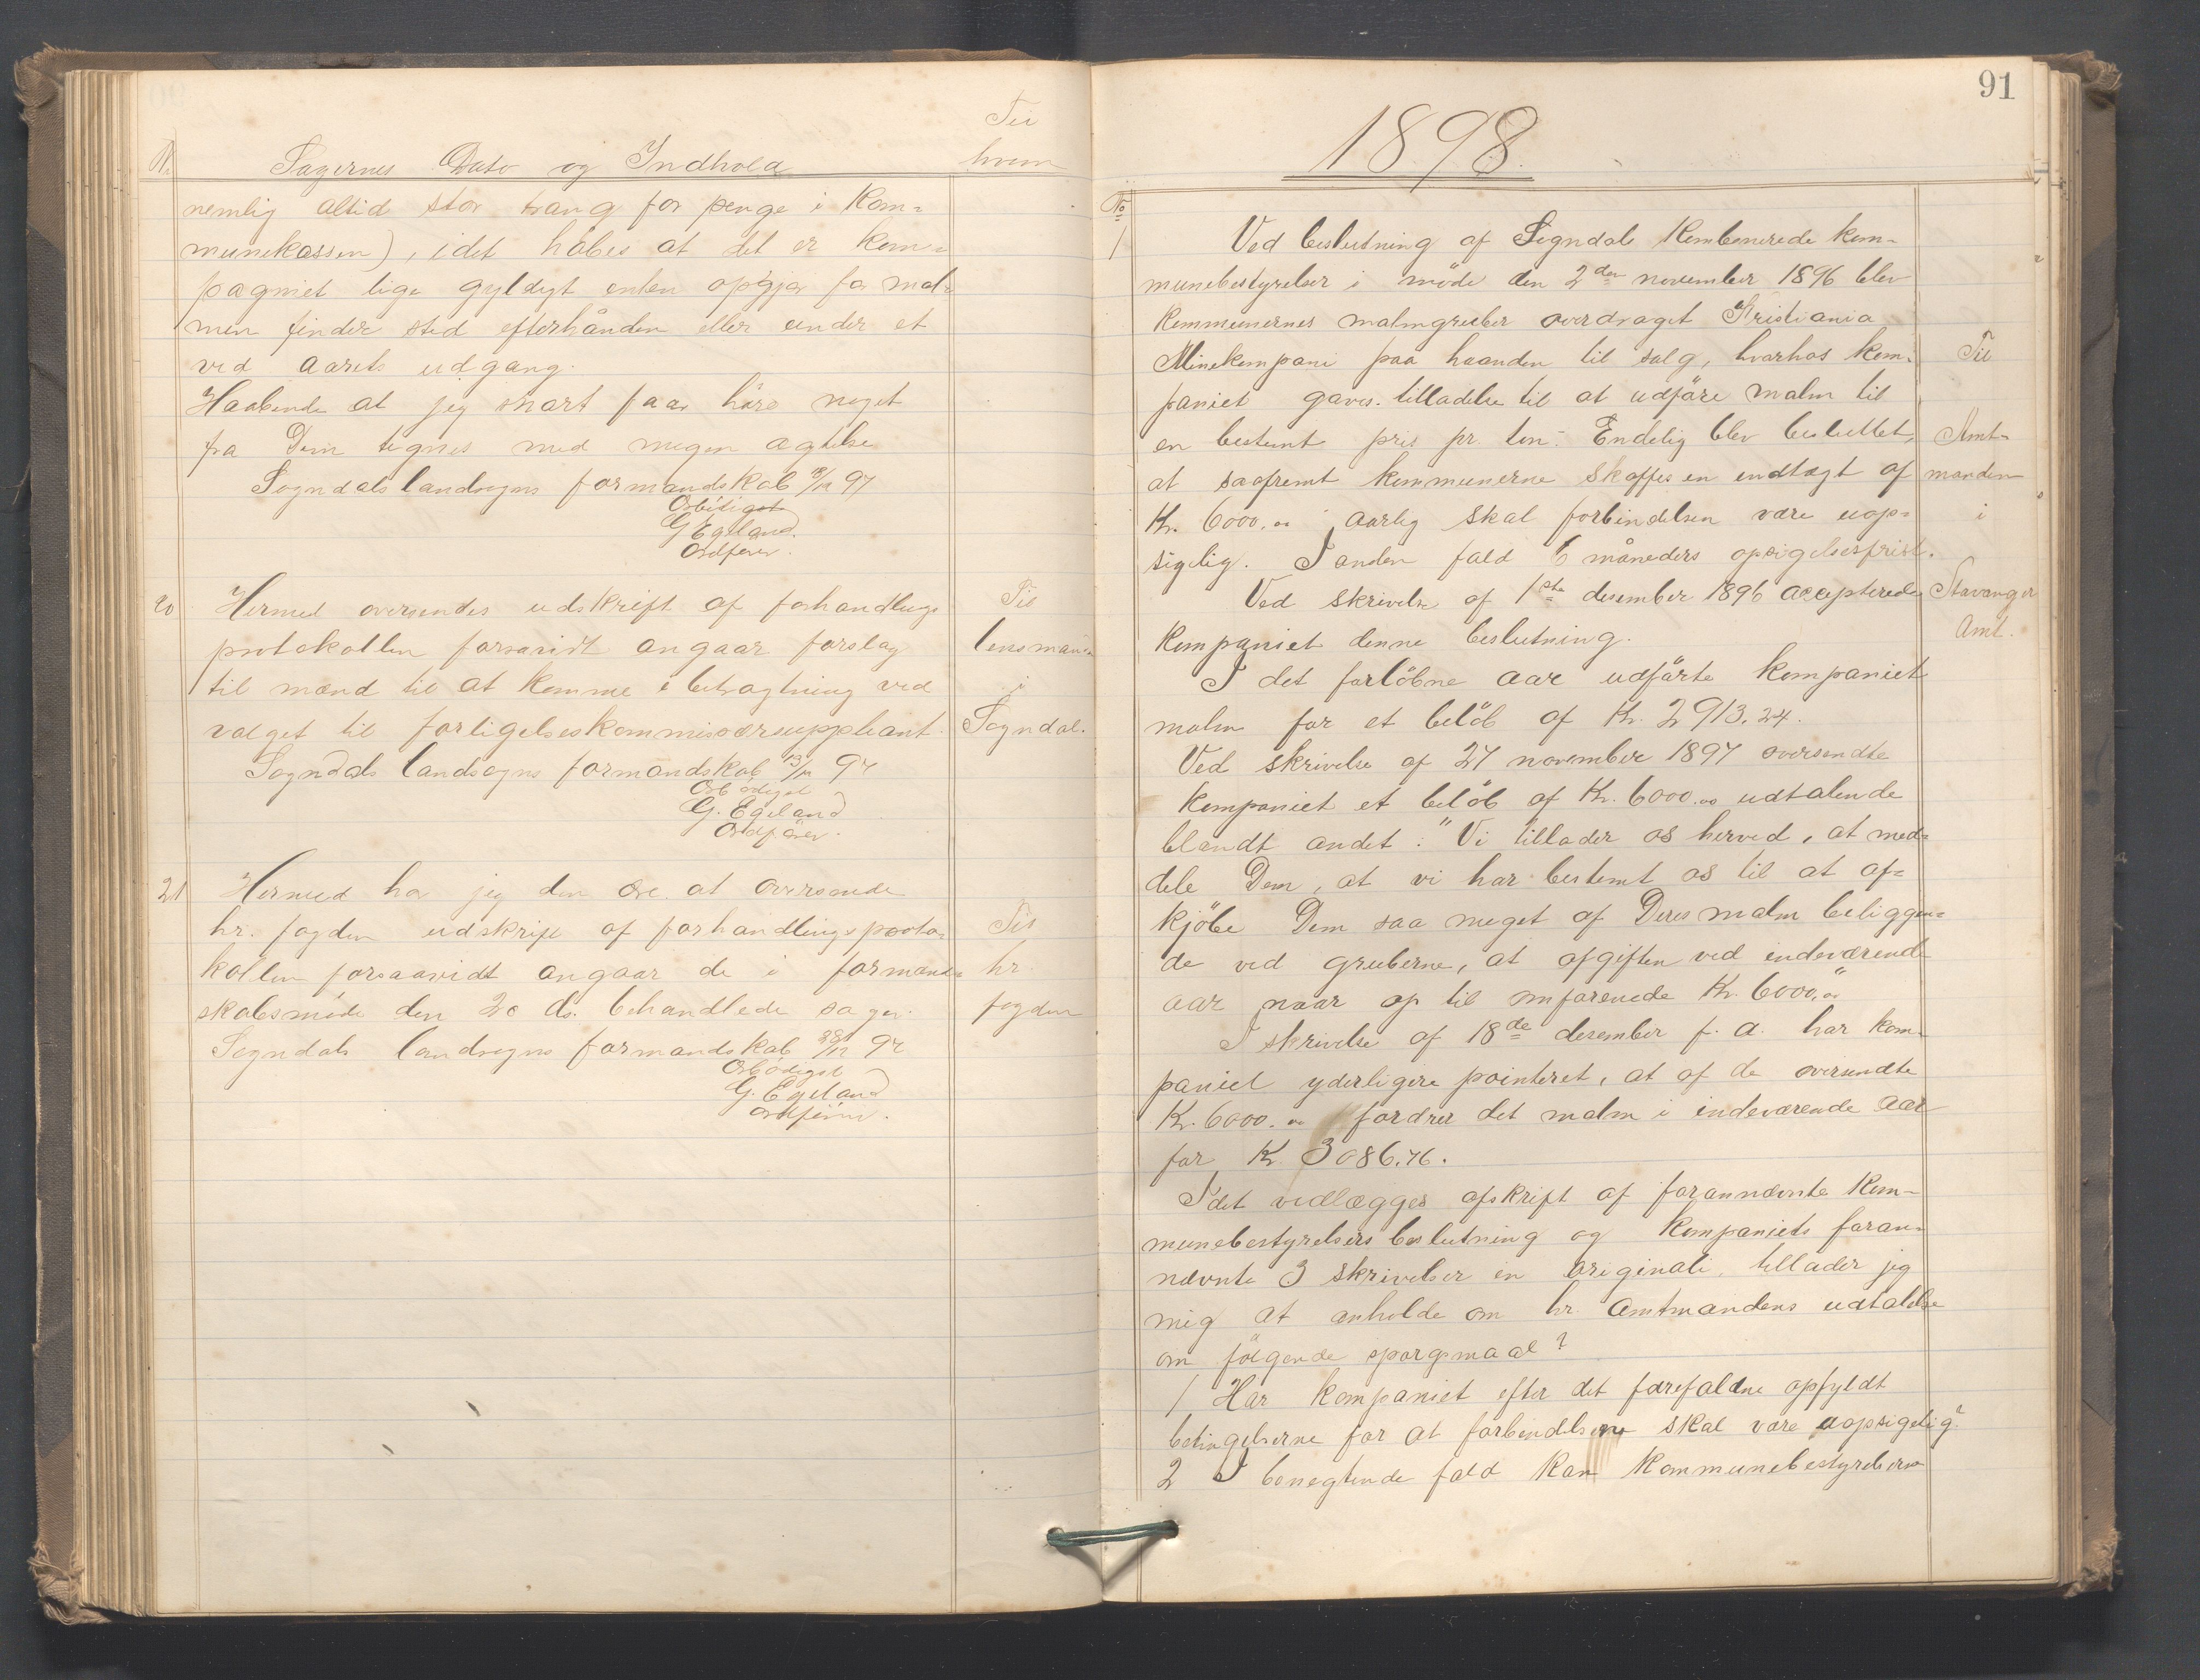 Til
N. Sagernes Dato og Indhold hvem
nemlig altid stor trang for penge i Kom=
munekassen), idet håbes at det er kom=
pagniet lige gyldigt enten opgjør for mal=
men finder sted efterhånden eller under et
ved aarets udgang.
Haabende at jeg snart faar höre noget
fra Dem tegnes med megen agtelse
Sogndals landsogns formandskab 97
Ærbödigst
G Egeland.
Ordförer.
20 Hermed oversendes udskrift af forhandlings
protokollen forsavidt angaar forslag
til mænd til at komme i betragtning ved
valget til forligelseskommisærsuppleant.
Sogndals landsogns formandskab 13/12 97
Ærbödigst
G. Egeland
Ordförer.
Til
lensman=
i
Sogndal.
21 Hermed har jeg den ære at oversende
hr. fogden udskrift af forhandlingsproto=
kollen forsaavidt angaar de i formand=
skabsmöde den 20 ds. behandlede sager.
Sogndals landsogns formandskab 28/12 97
Ærbödigst
G. Egeland
Ordförer.
Til
hr.
fogden
91
1898.
No
1 Ved beslutning af Sogndals kombenerede kom=
munebestyrelser i möde den 2den november 1896 blev
Kommunernes malmgruber overdraget Kristiania
Minekompani paa haanden til salg, hvorhos kom=
paniet gaves tilladelse til at udföre malm til
en bestemt pris pr. ton. Endelig blev besluttet,
at saafremt kommunerne skaffes en indtægt af
Kr. 6000.00 aarlig skal forbindelsen være uop=
sigelig. I anden fald 6 måneders opsigelsesfrist.
Ved skrivelse af 1ste desember 1896 accepterede
Kompaniet denne beslutning.
I det forløbne aar udförte kompaniet
malm for et belöb af Kr. 2913.24.
Ved skrivelse af 27 november 1897 oversendte
Kompaniet et belöb af Kr. 6000.00 udtalende
blandt andet: "Vi tillader os herved, at med=
dele Dem, at vi har bestemt os til at af=
kjöbe Dem saa meget af Deres malm beliggen=
de ved gruberne, at afgiften ved indeværende
aar naar op til omforenede Kr. 6000,00"
I skrivelse af 18de desember f. a. har kom=
paniet yderligere pointeret, at af de oversendte
Kr. 6000.00 fordrer det malm i indeværende aar
for Kr. 3086.76.
Idet vedlægges afskrift af forannævnte kom=
munebestyrelsers beslutning og Kompaniets foran=
nævnte 3 skrivelser in originali, tillader jeg
mig at anholde om hr. Amtmandens udtalelse
om følgende spørgsmaal?
1 Har kompaniet efter det forefaldne opfyldt
betingelserne for at forbindelserne skal være uopsigelig?
2 I benegtende fald kan kommunebestyrelserne
Til
Amt=
manden
i
Stavanger
Amt.